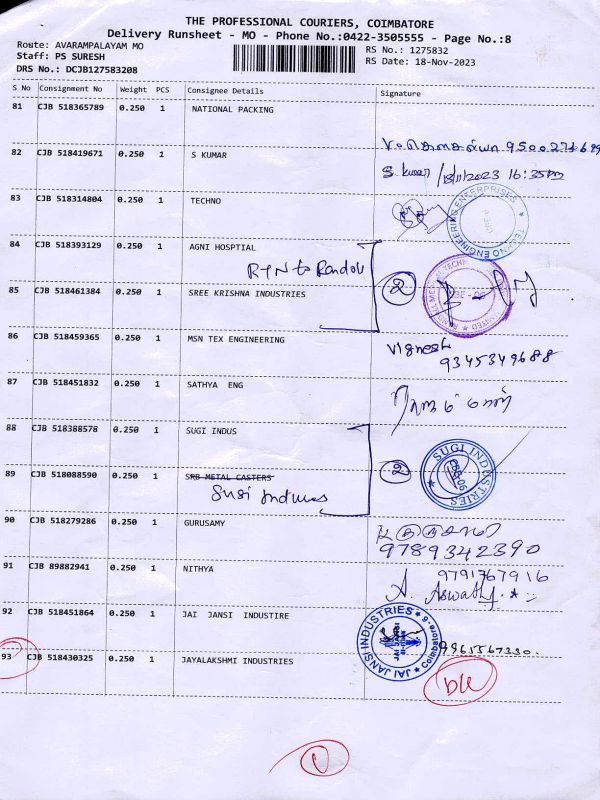 THE PROFESSIONAL COURIERS, COIMBATORE
Delivery Runsheet - MO - Phone No.:0422-3505555 - Page No.:8
Route: AVARAMPALAYAM MO
RS No.: 1275832
Staff: PS SURESH
RS Date: 18-Nov-2023
DRS No.: DCJB127583208
S No Consignment No Weight PCS Consignee Details Signature
81 CJB 518365789 0.250 1 NATIONAL PACKING
82 CJB 518419671 0.250 1 S KUMAR
S. Kumar / 18/11/2023 16:35pm
83 CJB 518314804 0.250 1 TECHNO
TECHNO ENGINEERING ENTERPRISES
84 CJB 518393129 0.250 1 AGNI HOSPTIAL
2
85 CJB 518461384 0.250 1 SREE KRISHNA INDUSTRIES
86 CJB 518459365 0.250 1 MSN TEX ENGINEERING
Vignesh
9345349688
87 CJB 518451832 0.250 1 SATHYA ENG
88 CJB 518388578 0.250 1 SUGI INDUS
SUGI INDUSTRIES
2
89 CJB 518088590 0.250 1 SRB METAL CASTERS
Sugi Indus
90 CJB 518279286 0.250 1 GURUSAMY
9789342390
91 CJB 89882941 0.250 1 NITHYA
9791767916
A. Aswathy
92 CJB 518451864 0.250 1 JAI JANSI INDUSTIRE
JAI JANSI INDUSTRIES
Coimbatore-6
9965567330.
93 CJB 518430325 0.250 1 JAYALAKSHMI INDUSTRIES
DL